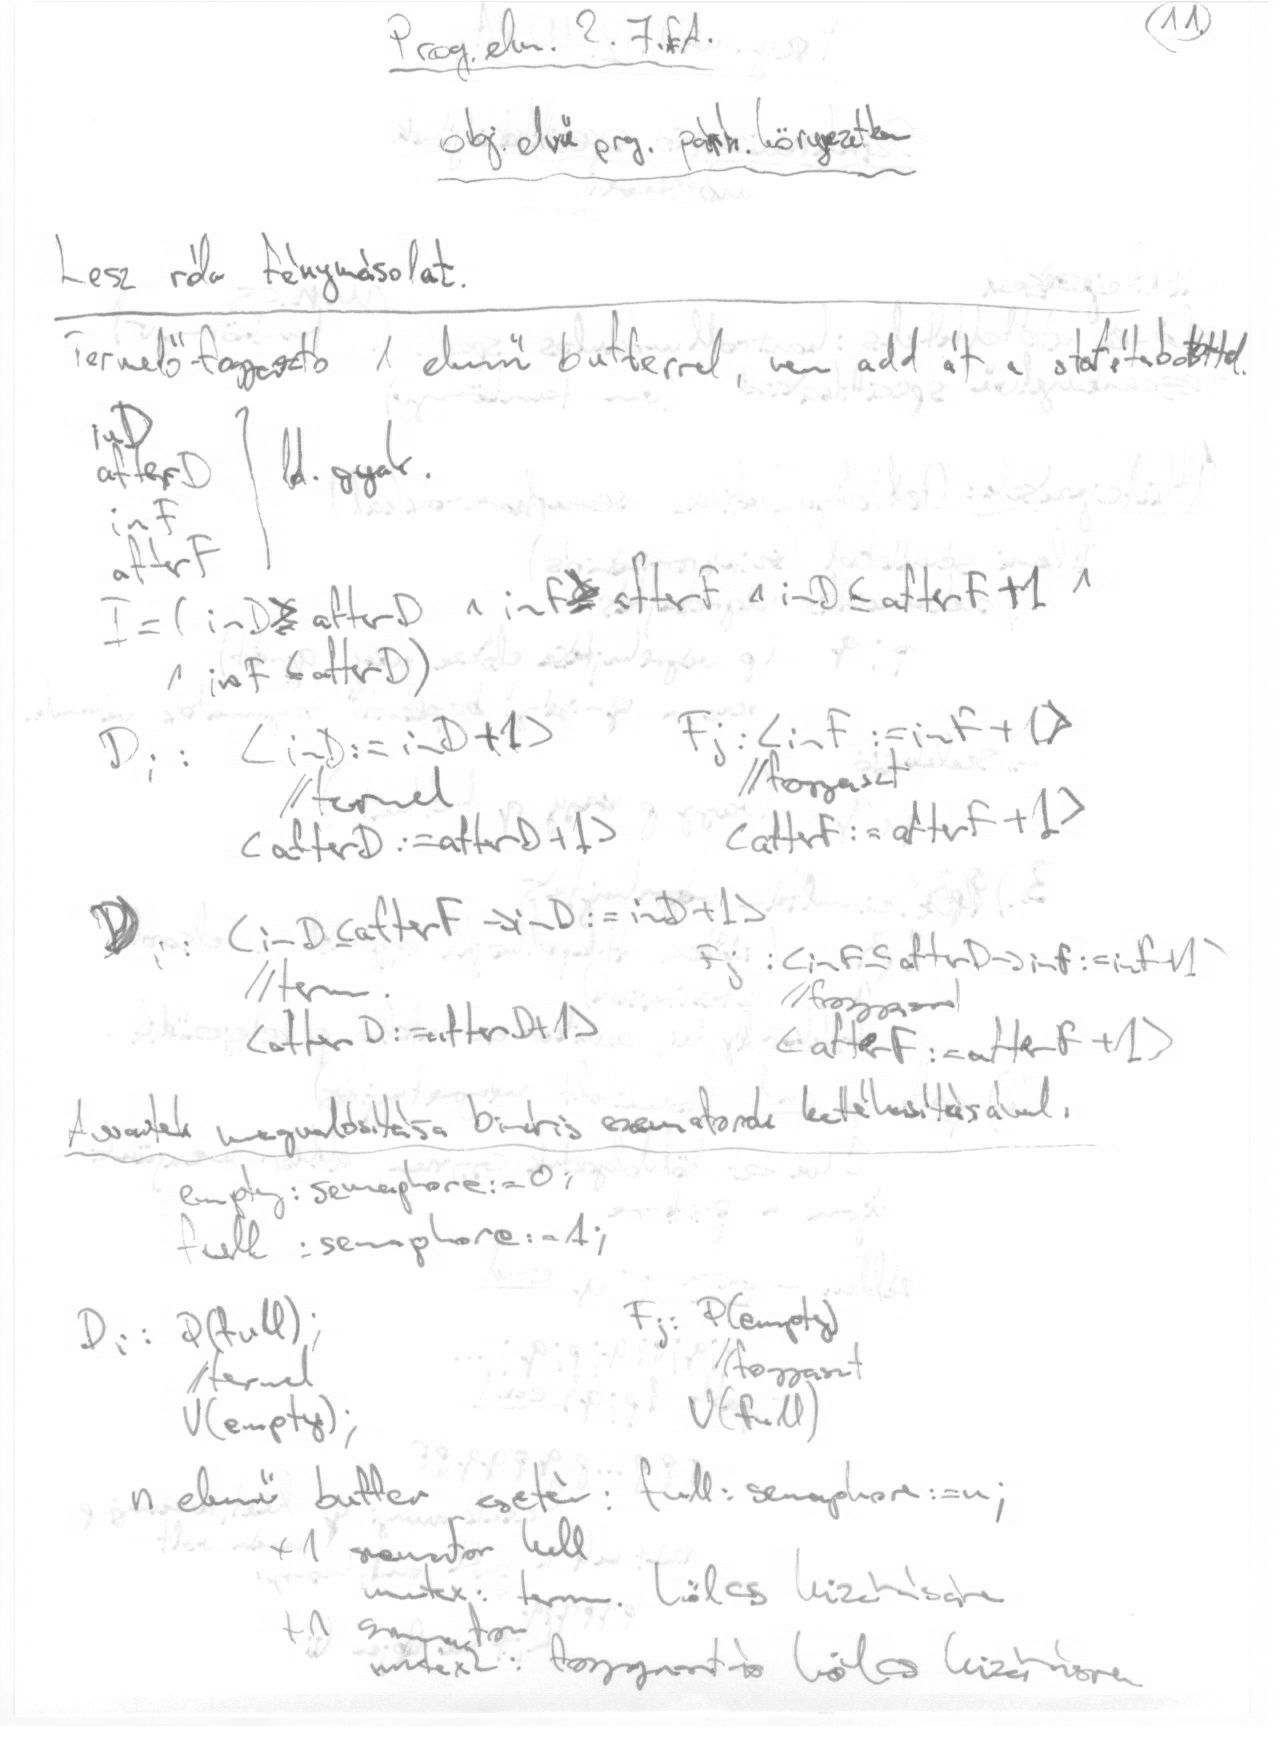 11.
Prog. elm. 2. 7. EA.
obj. elvű prg. párh. környezetben
Lesz róla fénymásolat.
Termelő-fogyasztó 1 elemű bufferrel, nem add át a
inD
afterD
inF
afterF
ld. gyak.
I = ( inD ≥ afterD ∧ inF ≥ afterF ∧ inD ≤ afterF + 1 ∧
∧ inF ≤ afterD)
Di: <inD := inD + 1> Fj: <inF := inF + 1>
//termel //fogyaszt
<afterD := afterD + 1> <afterF := afterF + 1>
Di: <inD ≤ afterF → inD := inD + 1>
Fj: <inF ≤ afterD → inF := inF + 1>
//term. //fogyaszt
<afterD := afterD + 1> <afterF := afterF + 1>
megvalósítása bináris szemaforok kettéhasításával.
empty: semaphore := 0;
full : semaphore := 1;
Di: P(full); Fj: P(empty)
//termel //fogyaszt
V(empty); V(full)
n elemű buffer esetén: full: semaphore := n;
+1 szemafor kell
mutex: term. kölcs kizárására
+1 szemafor
mutex2: fogyasztó kölcs kizárására